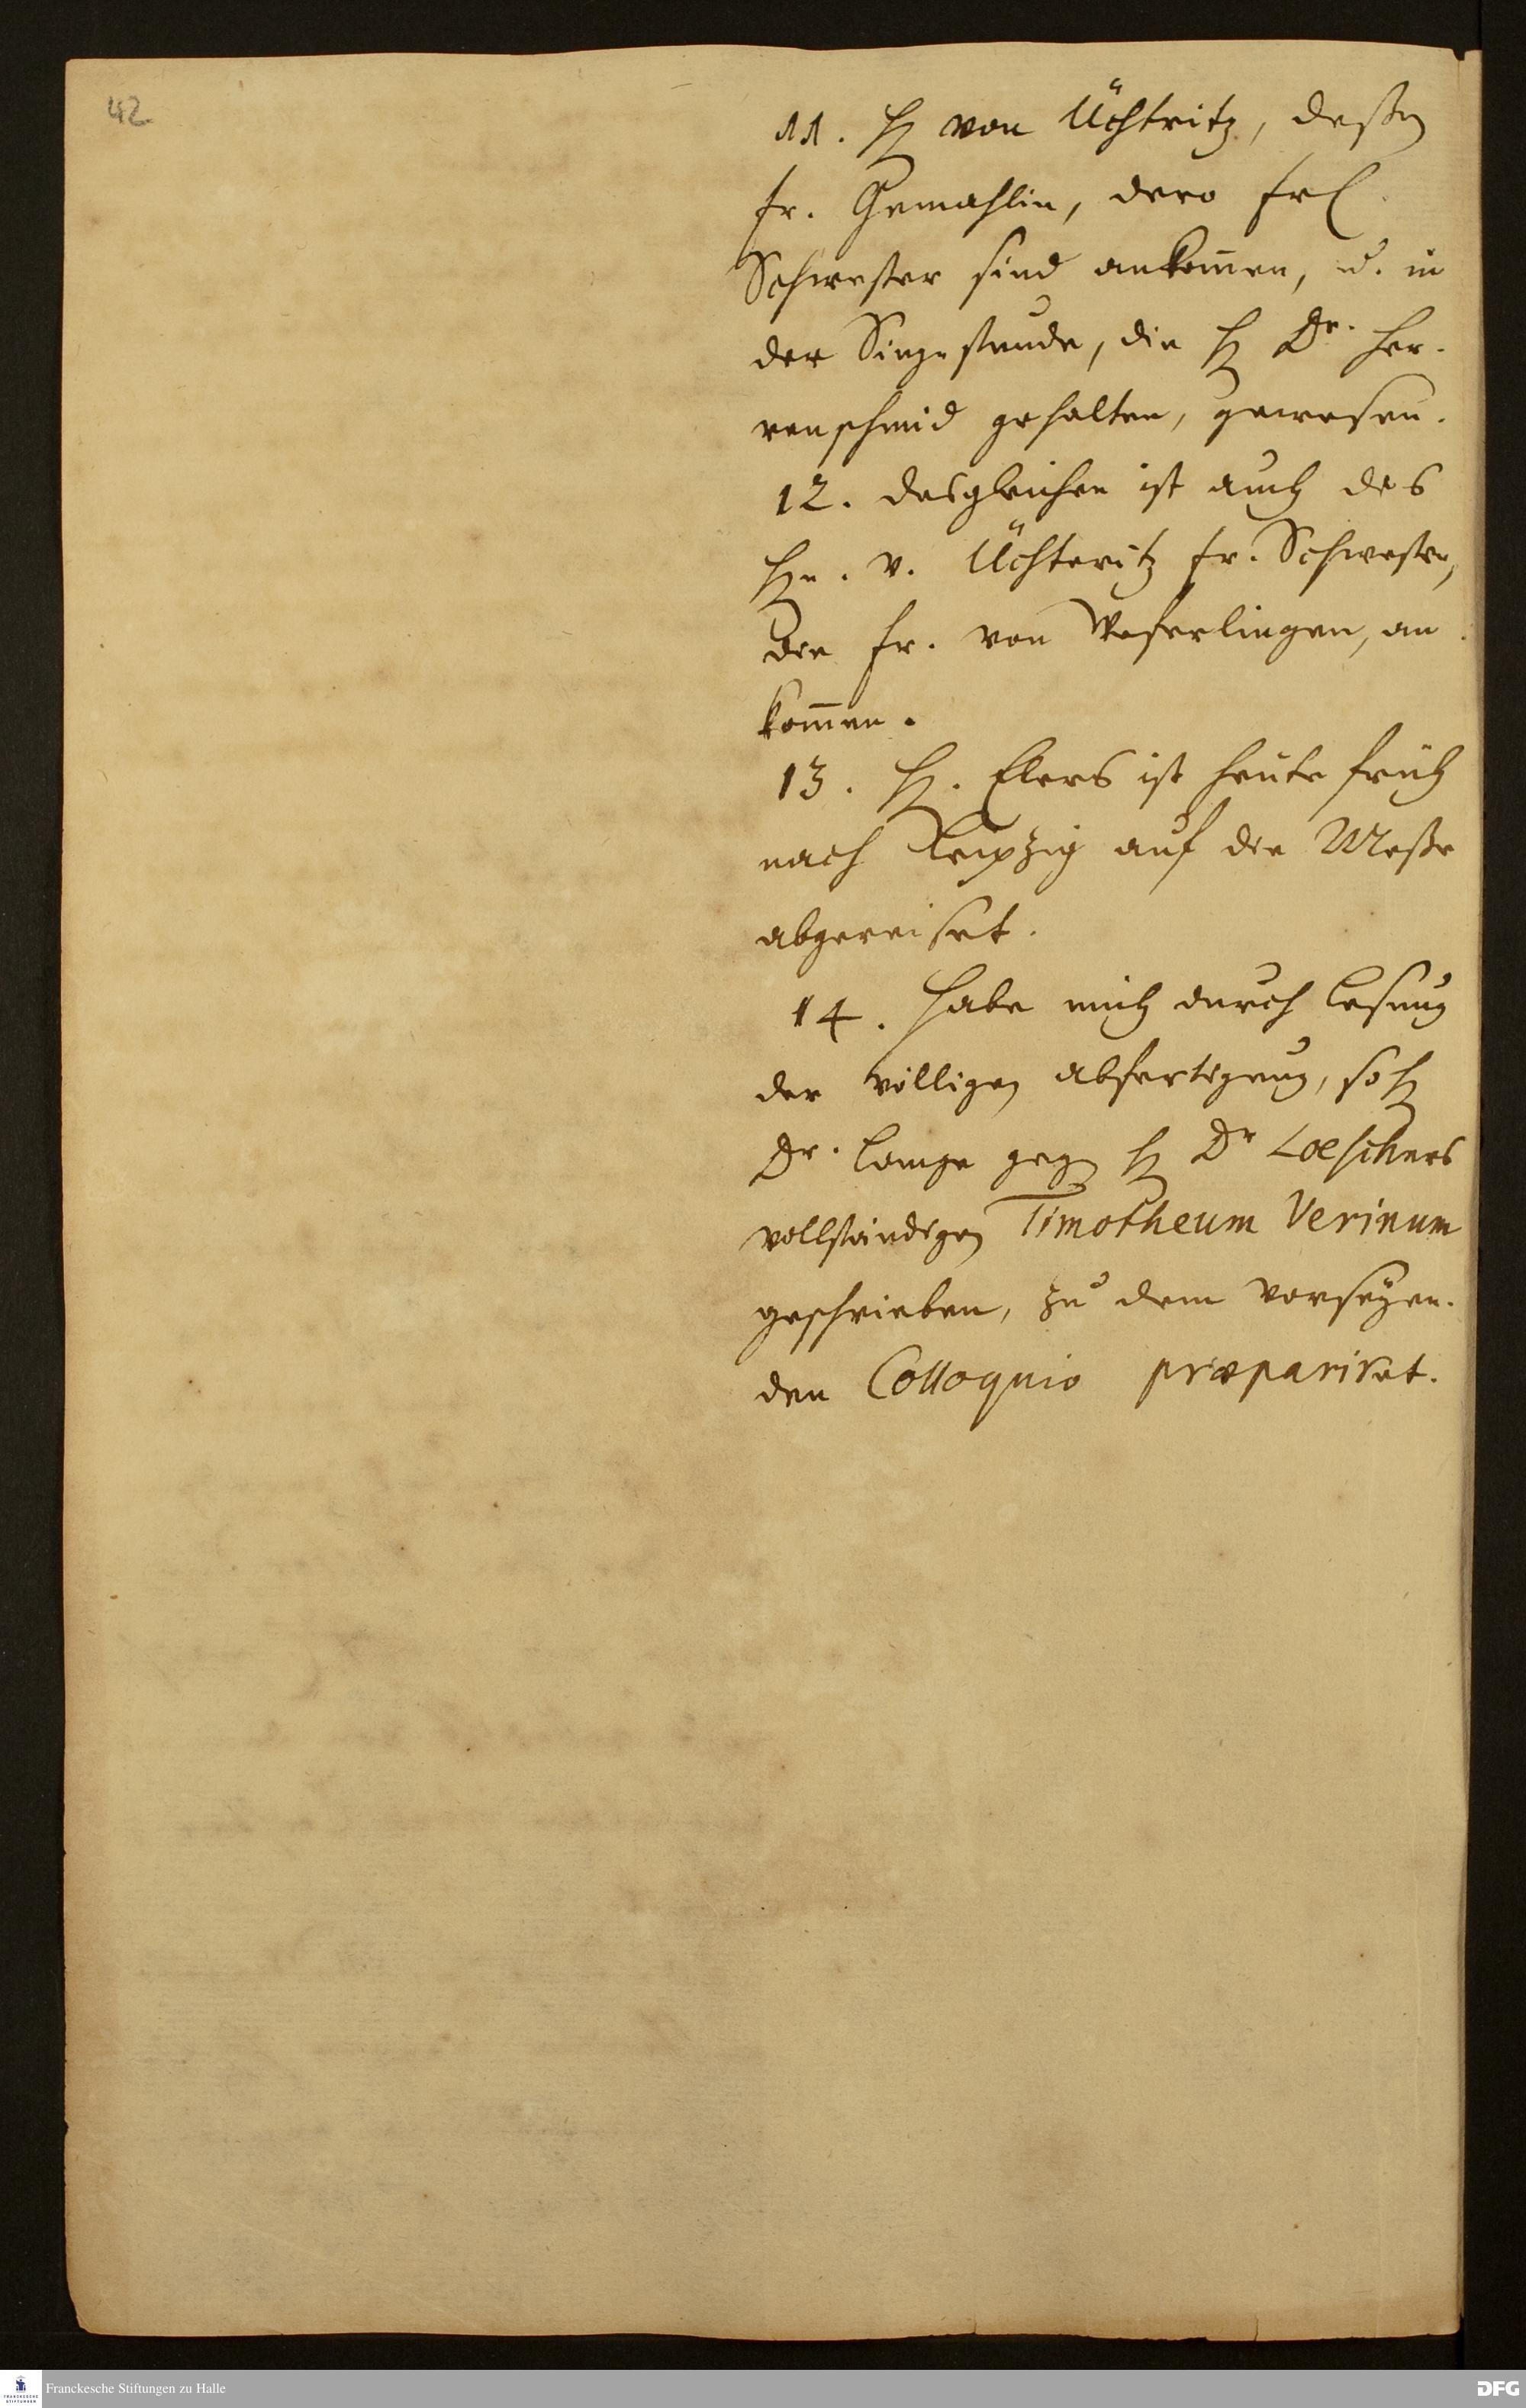 42
11. H. von Üchtritz, deßen
fr. Gemahlin, dero frl.
Schwester sind ankom̅en, u. in
der Singestunde, die H. Dr. Her-
renschmid gehalten, gewesen.
12. desgleichen ist auch des
Hn. v. Üchteritz fr. Schwester,
die fr. von Weferlingen, an-
kom̅en.
13. H. Elers ist heute früh
nach Leipzig auf die Meße
abgereiset.
14. Habe mich durch lesung
der völligen abfertigung, so H.
Dr. Lange gegen H. Dr Loeschers
vollständigen Timotheum Verinum
geschrieben, zu dem vorseyen-
den Colloquio præpariret.
Franckesche Stiftungen zu Halle
FRANCKESCHE
STIFTUNGEN
DFG